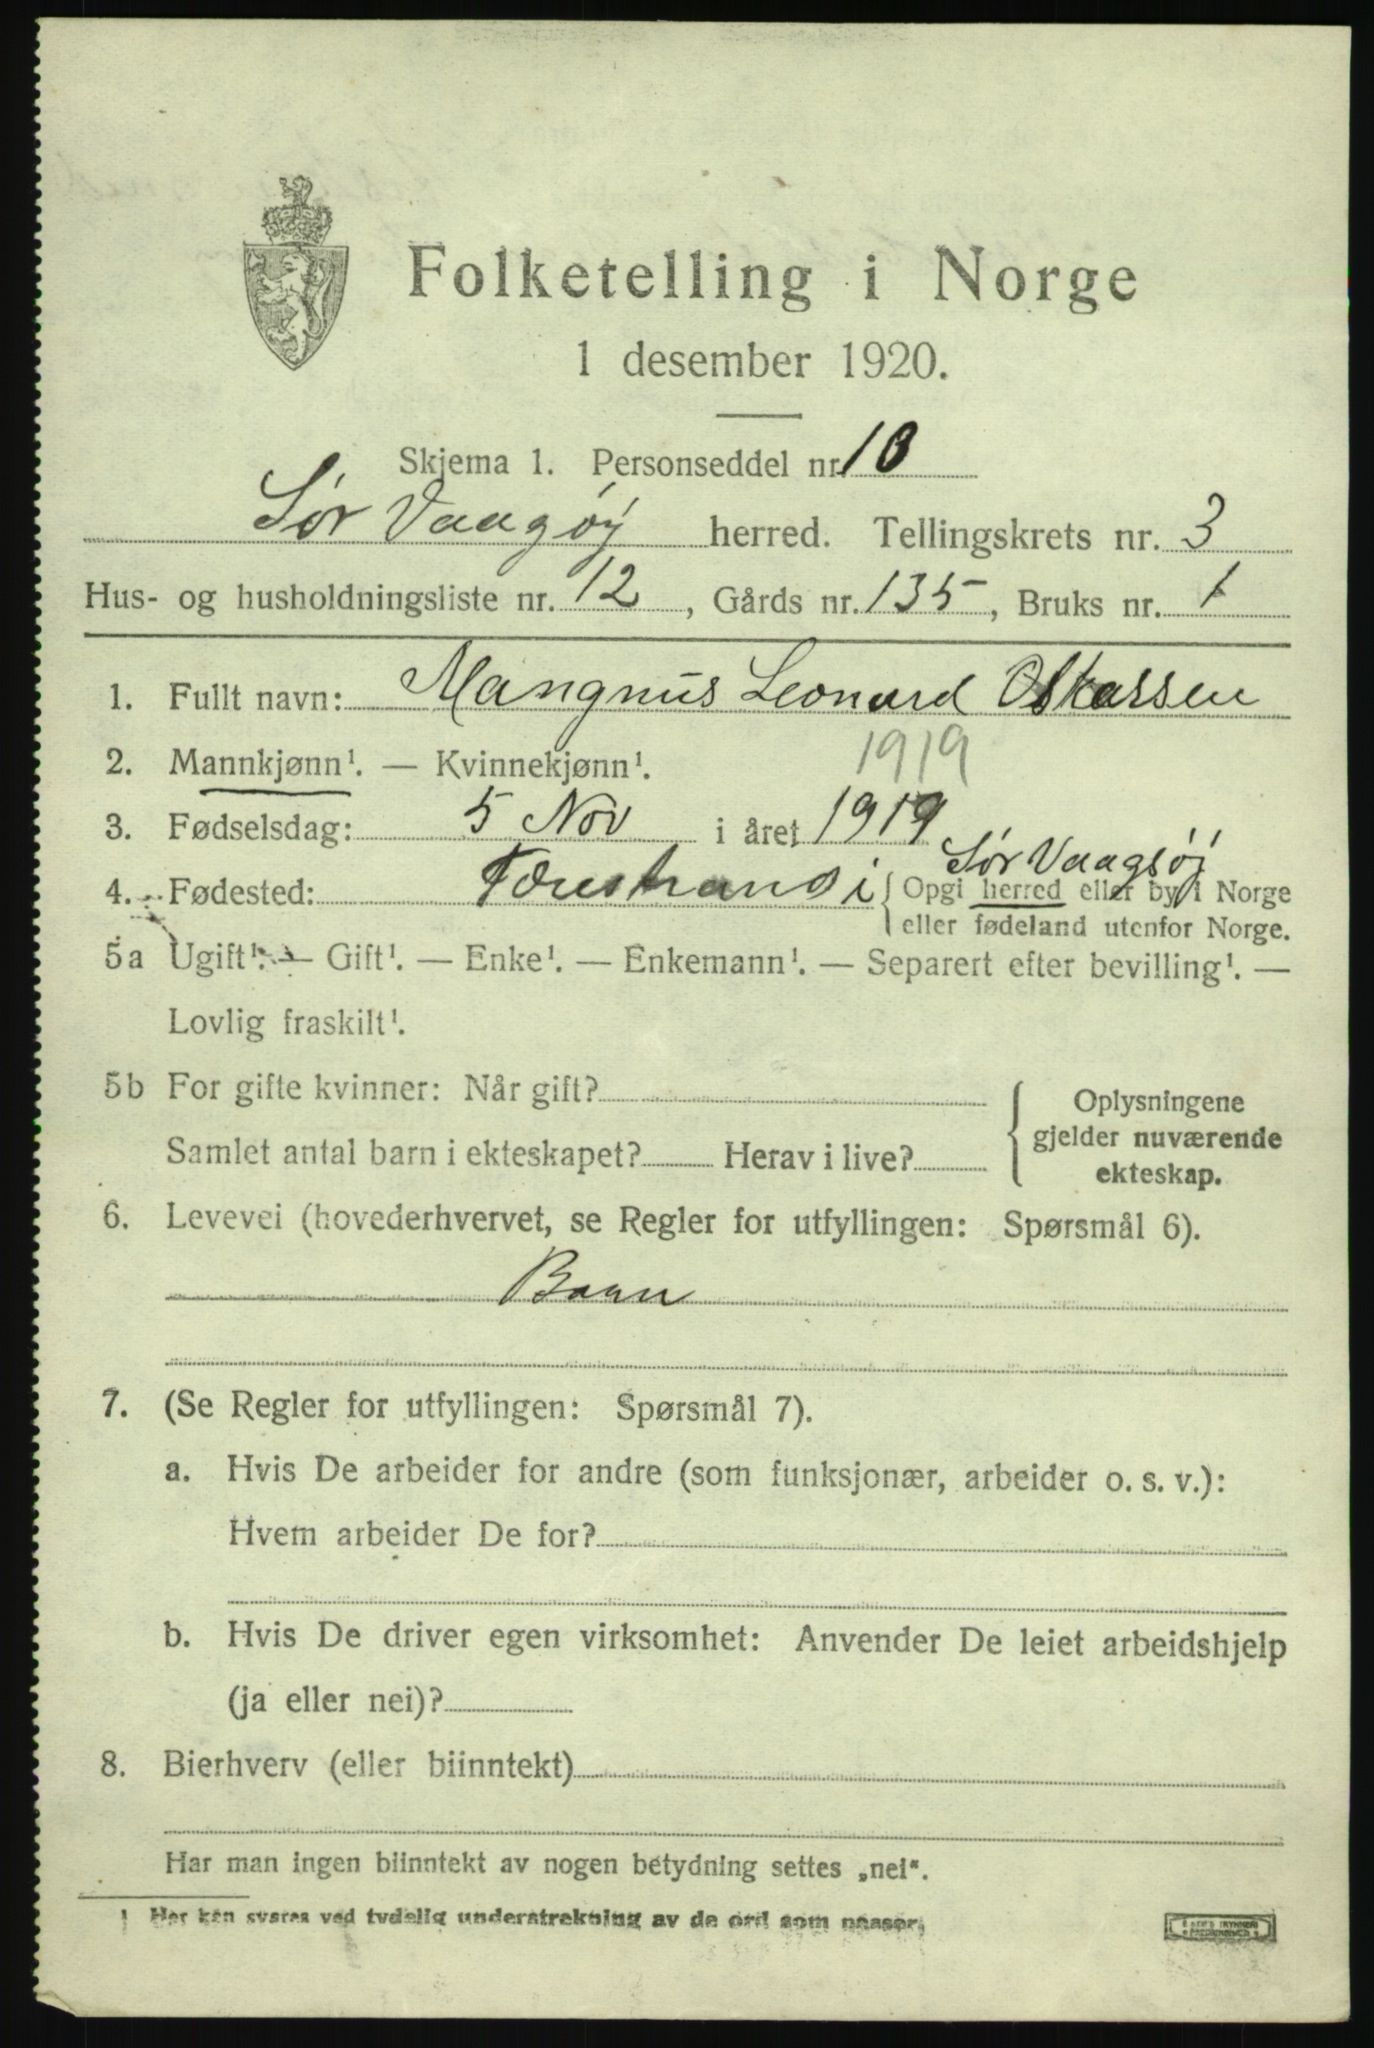 Folketelling i Norge
1 desember 1920.
Skjema 1. Personseddel nr. 10
Sør Vaagsøy herred. Tellingskrets nr. 3
Hus- og husholdningsliste nr. 12, Gårds nr. 135, Bruks nr. 1
1. Fullt navn: Mangnus Leonard Oskarssen
2. Mannkjønn¹. — Kvinnekjønn¹. 1919
3. Fødselsdag: 5 Nov i året 1919
Sør Vaagsøj
4. Fødested: i { Opgi herred eller by i Norge
eller fødeland utenfor Norge.
5a Ugift¹. — Gift¹. — Enke¹. — Enkemann¹. — Separert efter bevilling¹. —
Lovlig fraskilt¹.
5b For gifte kvinner: Når gift?
Samlet antal barn i ekteskapet? Herav i live?
Oplysningene
gjelder nuværende
ekteskap.
6. Levevei (hovederhvervet, se Regler for utfyllingen: Spørsmål 6).
Baan
7. (Se Regler for utfyllingen: Spørsmål 7).
a. Hvis De arbeider for andre (som funksjonær, arbeider o. s. v.):
Hvem arbeider De for?
b. Hvis De driver egen virksomhet: Anvender De leiet arbeidshjelp
(ja eller nei)?
8. Bierhverv (eller biinntekt)
Har man ingen biinntekt av nogen betydning settes „nei“.
1 Her kan svares ved tydelig understrekning av de ord som passer.